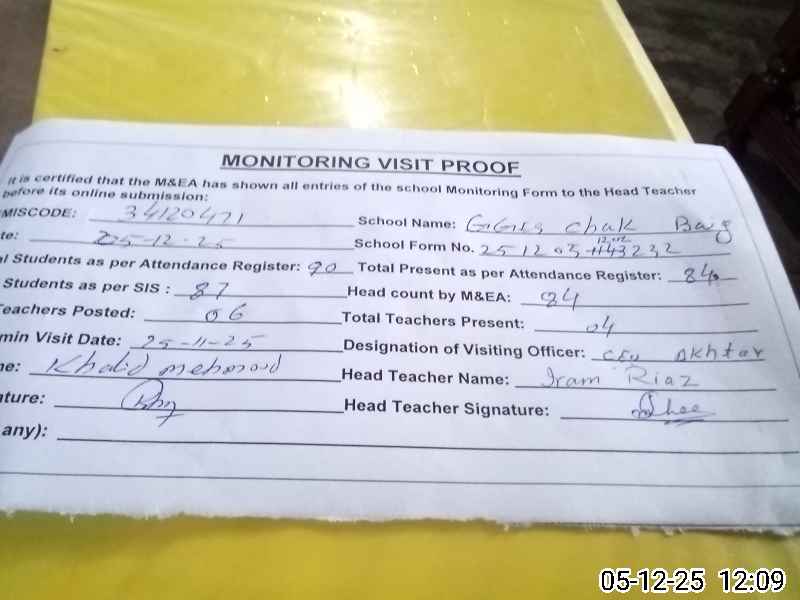 MONITORING VISIT PROOF
It is certified that the M&EA has shown all entries of the school Monitoring Form to the Head Teacher
before its online submission:
MISCODE: 34120471 School Name: GGES Chak Baig
te: 05-12-25 School Form No. 251205
l Students as per Attendance Register: 90 Total Present as per Attendance Register: 84
Students as per SIS : 87 Head count by M&EA: 84
eachers Posted: 06 Total Teachers Present: 04
min Visit Date: 25-11-25 Designation of Visiting Officer: CEO Akhtar
me: Khalid mehmood Head Teacher Name: Iram Riaz
ature: Head Teacher Signature:
any):
05-12-25 12:09